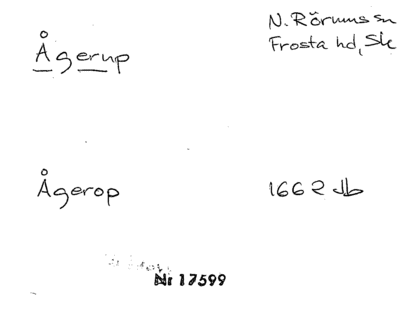 Ågerup
N. Rörums sn
Frosta hd, Sk
Ågerop
1662 Jb
Nr 17599